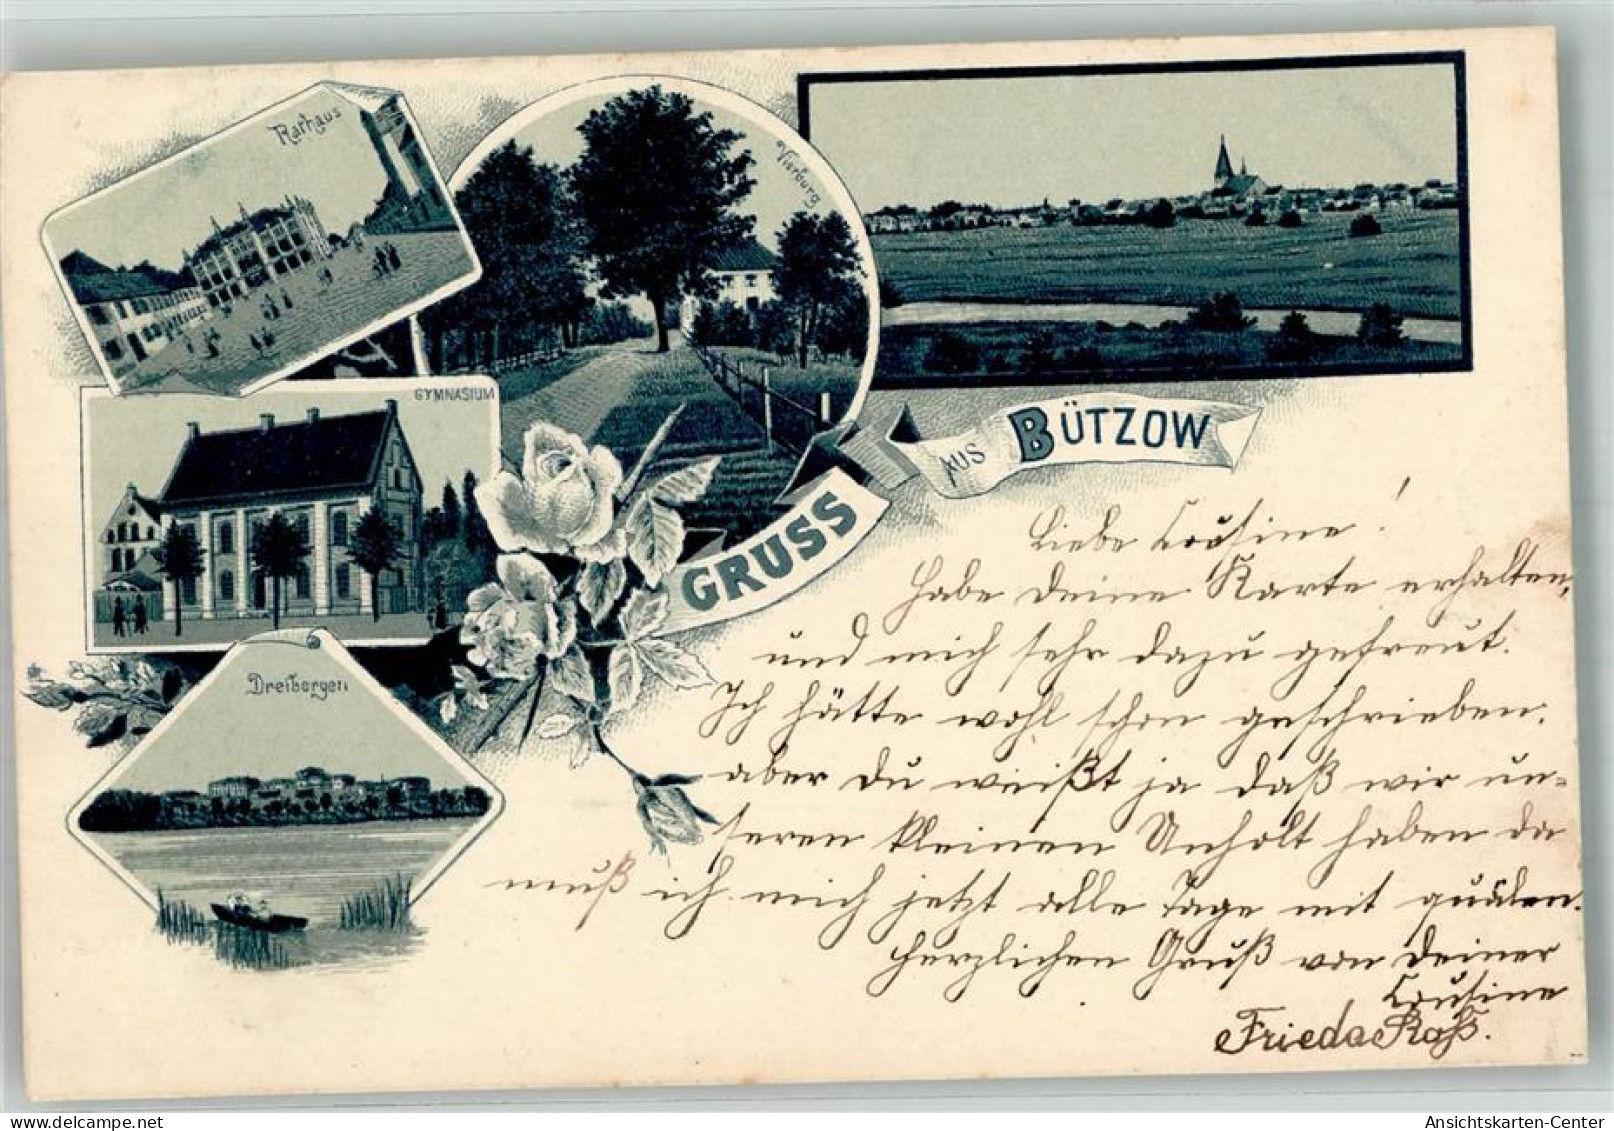 Rathaus
Vierburg
GYMNASIUM
GRUSS
AUS BÜTZOW
Dreibergen
Liebe Cousine!
Habe Deine Karte erhalten,
und mich sehr dazu gefreut.
Ich hätte wohl schon geschrieben,
aber Du weißt ja daß wir un-
seren kleinen Unholt haben da
muß ich mich jetzt alle Tage mit quälen.
Herzlichen Gruß von Deiner
Cousine
Frieda Roß.
Ansichtskarten-Center